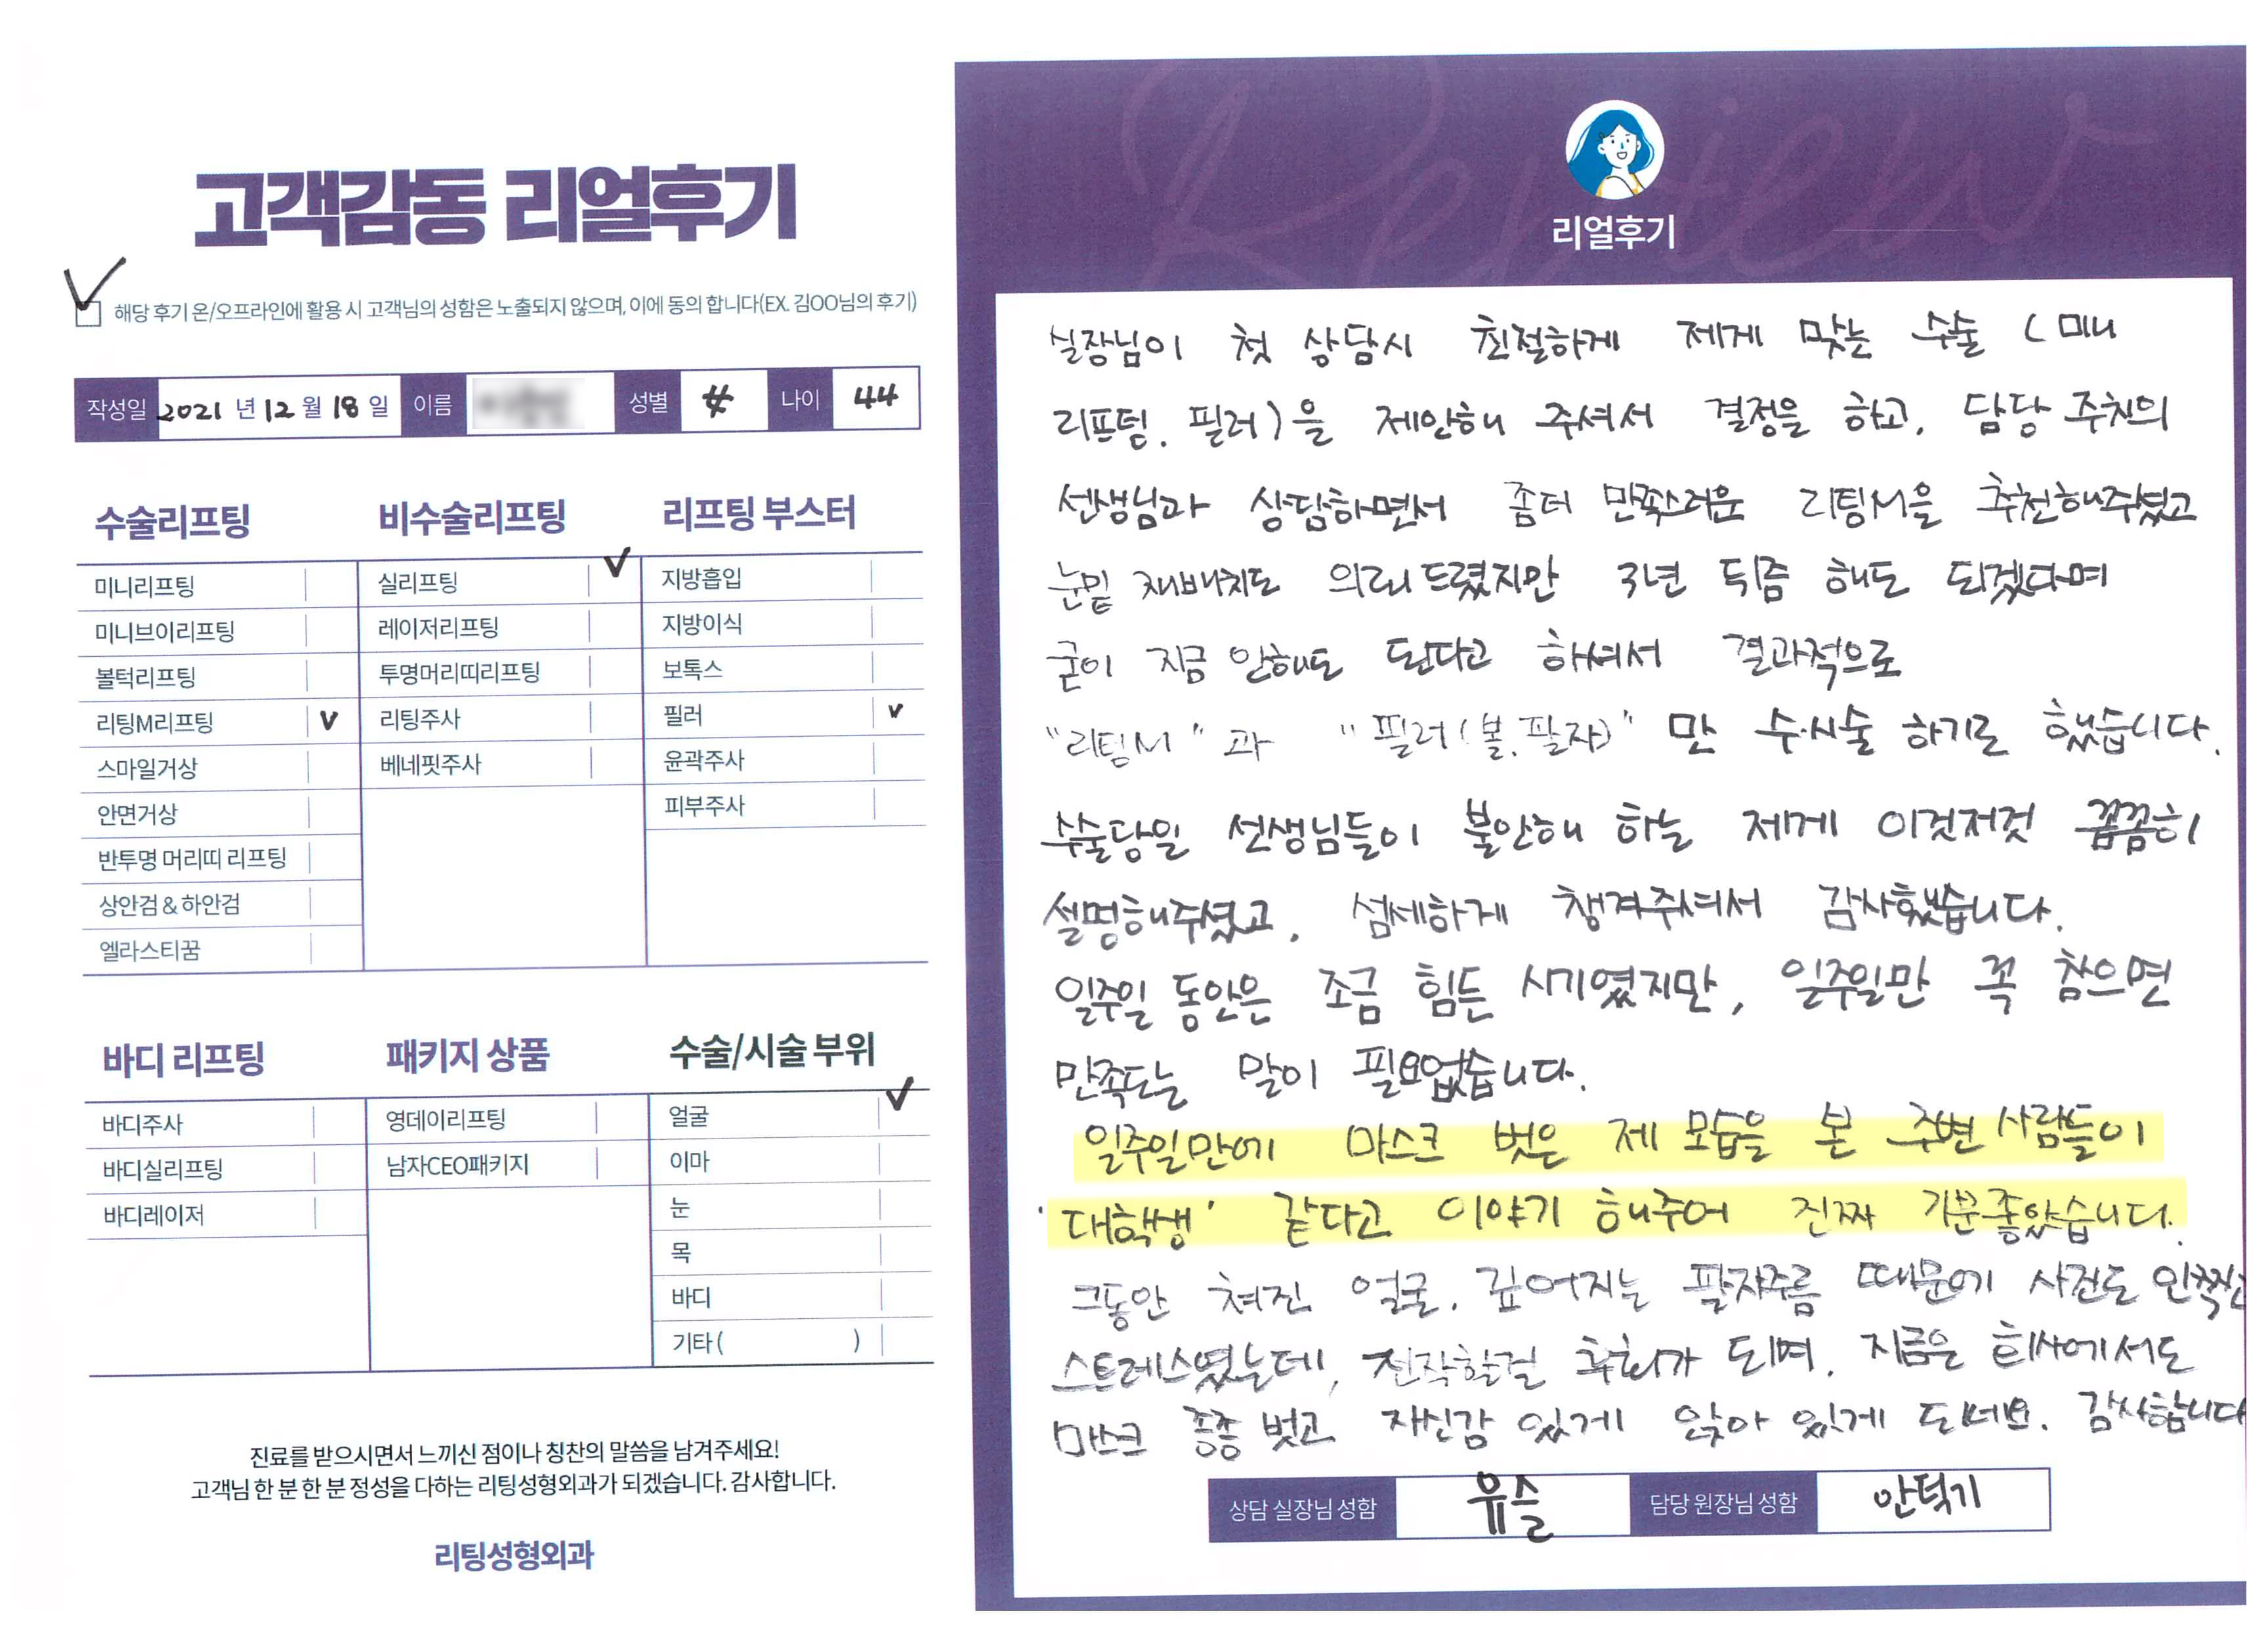 고객감동 리얼후기
해당 후기 온/오프라인에 활용 시 고객님의 성함은 노출되지 않으며, 이에 동의 합니다(EX. 김OO님의 후기)
작성일 2021 년 12 월 18 일 이름 성별 나이 44
수술리프팅
미니리프팅
미니브이리프팅
볼턱리프팅
리팅M리프팅 v
스마일거상
안면거상
반투명 머리띠 리프팅
상안검 & 하안검
엘라스티꿈
비수술리프팅
실리프팅 v
레이저리프팅
투명머리띠리프팅
리팅주사
베네핏주사
리프팅 부스터
지방흡입
지방이식
보톡스
필러 v
윤곽주사
피부주사
바디 리프팅
바디주사
바디실리프팅
바디레이저
패키지 상품
영데이리프팅
남자CEO패키지
수술/시술 부위
얼굴 v
이마
눈
목
바디
기타 ( )
진료를 받으시면서 느끼신 점이나 칭찬의 말씀을 남겨주세요!
고객님 한 분 한 분 정성을 다하는 리팅성형외과가 되겠습니다. 감사합니다.
리팅성형외과
Review
리얼후기
실장님이 첫 상담시 친절하게 제게 맞는 수술 (미니
리프팅. 필러)을 제안해 주셔서 결정을 하고, 담당 주치의
선생님과 상담하면서 좀더 만족스러운 리팅M을 추천해주셨고
눈밑 재배치도 의뢰드렸지만 3년 뒤쯤 해도 되겠다며
굳이 지금 안해도 된다고 하셔서 결과적으로
"리팅M" 과 "필러(볼.팔자)" 만 수·시술 하기로 했습니다.
수술당일 선생님들이 불안해 하는 제게 이것저것 꼼꼼히
설명해주셨고, 섬세하게 챙겨주셔서 감사했습니다.
일주일 동안은 조금 힘든 시기였지만, 일주일만 꼭 참으면
만족도는 말이 필요없습니다.
일주일만에 마스크 벗은 제 모습을 본 주변 사람들이
'대학생' 같다고 이야기 해주어 진짜 기분좋았습니다.
그동안 쳐진 얼굴. 깊어지는 팔자주름 때문에 사진도 안찍고
스트레스였는데, 진작할걸 후회가 되며, 지금은 회사에서도
마스크 종종 벗고 자신감 있게 앉아 있게 되네요. 감사합니다
상담 실장님 성함 유슬 담당 원장님 성함 안덕기